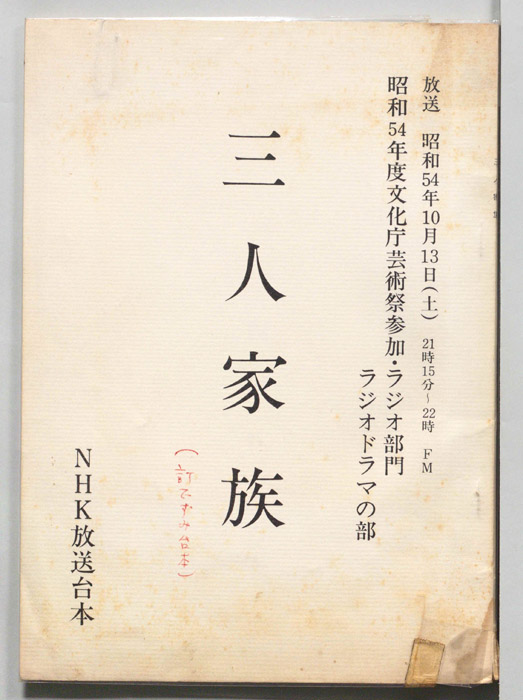 放送　昭和54年10月13日(土)　21時15分～22時　FM
昭和54年度文化庁芸術祭参加・ラジオ部門
ラジオドラマの部
三人家族
(訂てずみ台本)
NHK放送台本